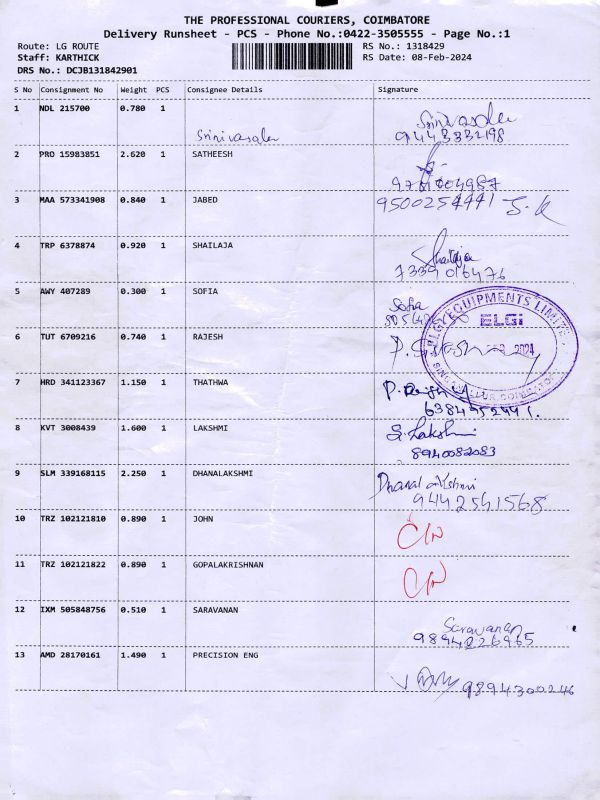 THE PROFESSIONAL COURIERS, COIMBATORE
Delivery Runsheet - PCS - Phone No.:0422-3505555 - Page No.:1
Route: LG ROUTE RS No.: 1318429
Staff: KARTHICK RS Date: 08-Feb-2024
DRS No.: DCJB131842901
S No Consignment No Weight PCS Consignee Details Signature
1 NDL 215700 0.780 1 Srinivasalu Srinivasalu
9443332198
2 PRO 15983851 2.620 1 SATHEESH
3 MAA 573341908 0.840 1 JABED 9500254441 S.K
4 TRP 6378874 0.920 1 SHAILAJA Shailaja
7339016476
5 AWY 407289 0.300 1 SOFIA Sofia
ELGI EQUIPMENTS LIMITED
ELGi
2024
6 TUT 6709216 0.740 1 RAJESH
7 HRD 341123367 1.150 1 THATHWA
8 KVT 3008439 1.600 1 LAKSHMI S. Lakshmi
8940082083
9 SLM 339168115 2.250 1 DHANALAKSHMI Dhanalakshmi
9442541568
10 TRZ 102121810 0.890 1 JOHN
11 TRZ 102121822 0.890 1 GOPALAKRISHNAN
12 IXM 505848756 0.510 1 SARAVANAN Saravanan
9894226965
13 AMD 28170161 1.490 1 PRECISION ENG 9894300246